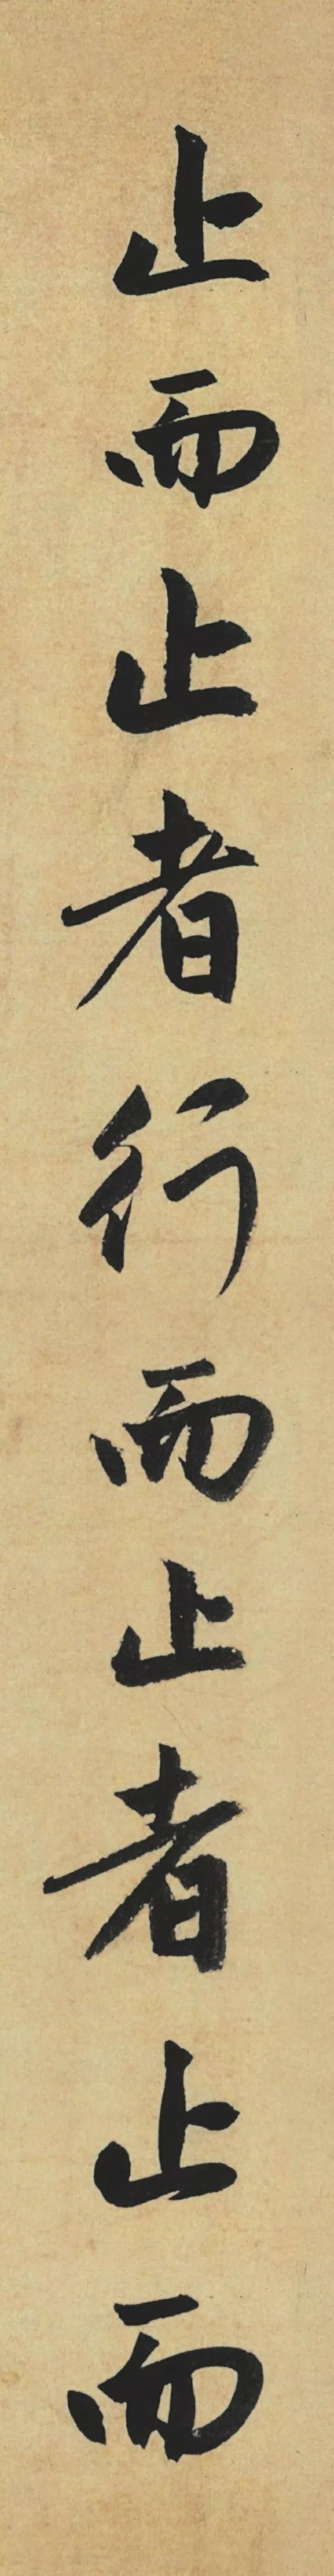 止而止者行而止者止而